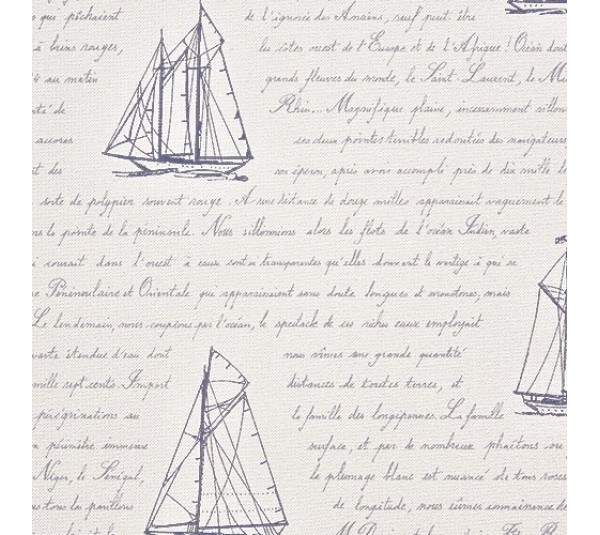 qui pêchaient de l'ignorée des Arsains, sauf peut être
à brins rouges, les côtes ouest de l'Europe et de l'Afrique! Océan dont
au matin grands fleuves du monde, le Saint-Laurent, le M
té de Rhin... Magnifique plaine, incessamment sillon
aurores ses deux pointes terribles redoutées des navigateurs
t des son éperon, après avoir accompli près de dix mille le
sorte de polypier souvent rouge. A une distance de douze milles apparaissait vaguement le
la pointe de la péninsule. Nous sillonnions alors les flots de l'océan Indien, vaste
courait dans l'ouest à eaux sont si transparentes qu'elles donnent le vertige à qui se
e Péninsulaire et Orientale qui apparaissaient sans doute longues et monotones, mais
Le lendemain, nous coupions par l'océan, le spectacle de ses riches eaux employait
vaste étendue d'eau dont nous vîmes une grande quantité
mille sept cents. Import distances de toutes terres, et
pérégrinations au la famille des longipennes. La famille
périmètre immense surface, et par de nombreux phaétons ou
Niger, le Sénégal, le plumage blanc est nuancé de tons roses
tous les pavillons de longitude, nous eûmes connaissance de